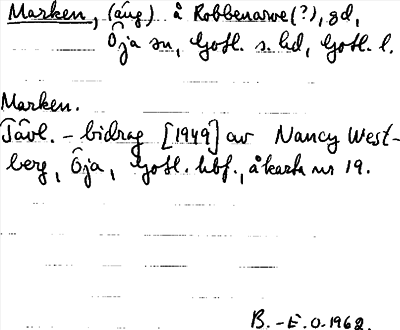 Marken, (äng) å Robbenarve(?), gd,
Öja sn, Gotl. s. hd, Gotl. l.
Marken.
Tävl.-bidrag [1949] av Nancy West-
berg, Öja, Gotl. hbf., åkark nr 19.
B.-E.O. 1962.